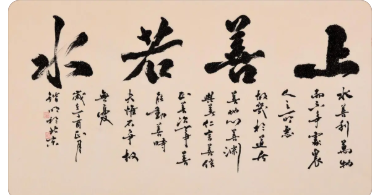 上善若水
水善利萬物
而不爭處衆
人之所惡
故幾於道居
善地心善淵
與善仁言善信
正善治事善
能動善時
夫惟不爭故
無憂